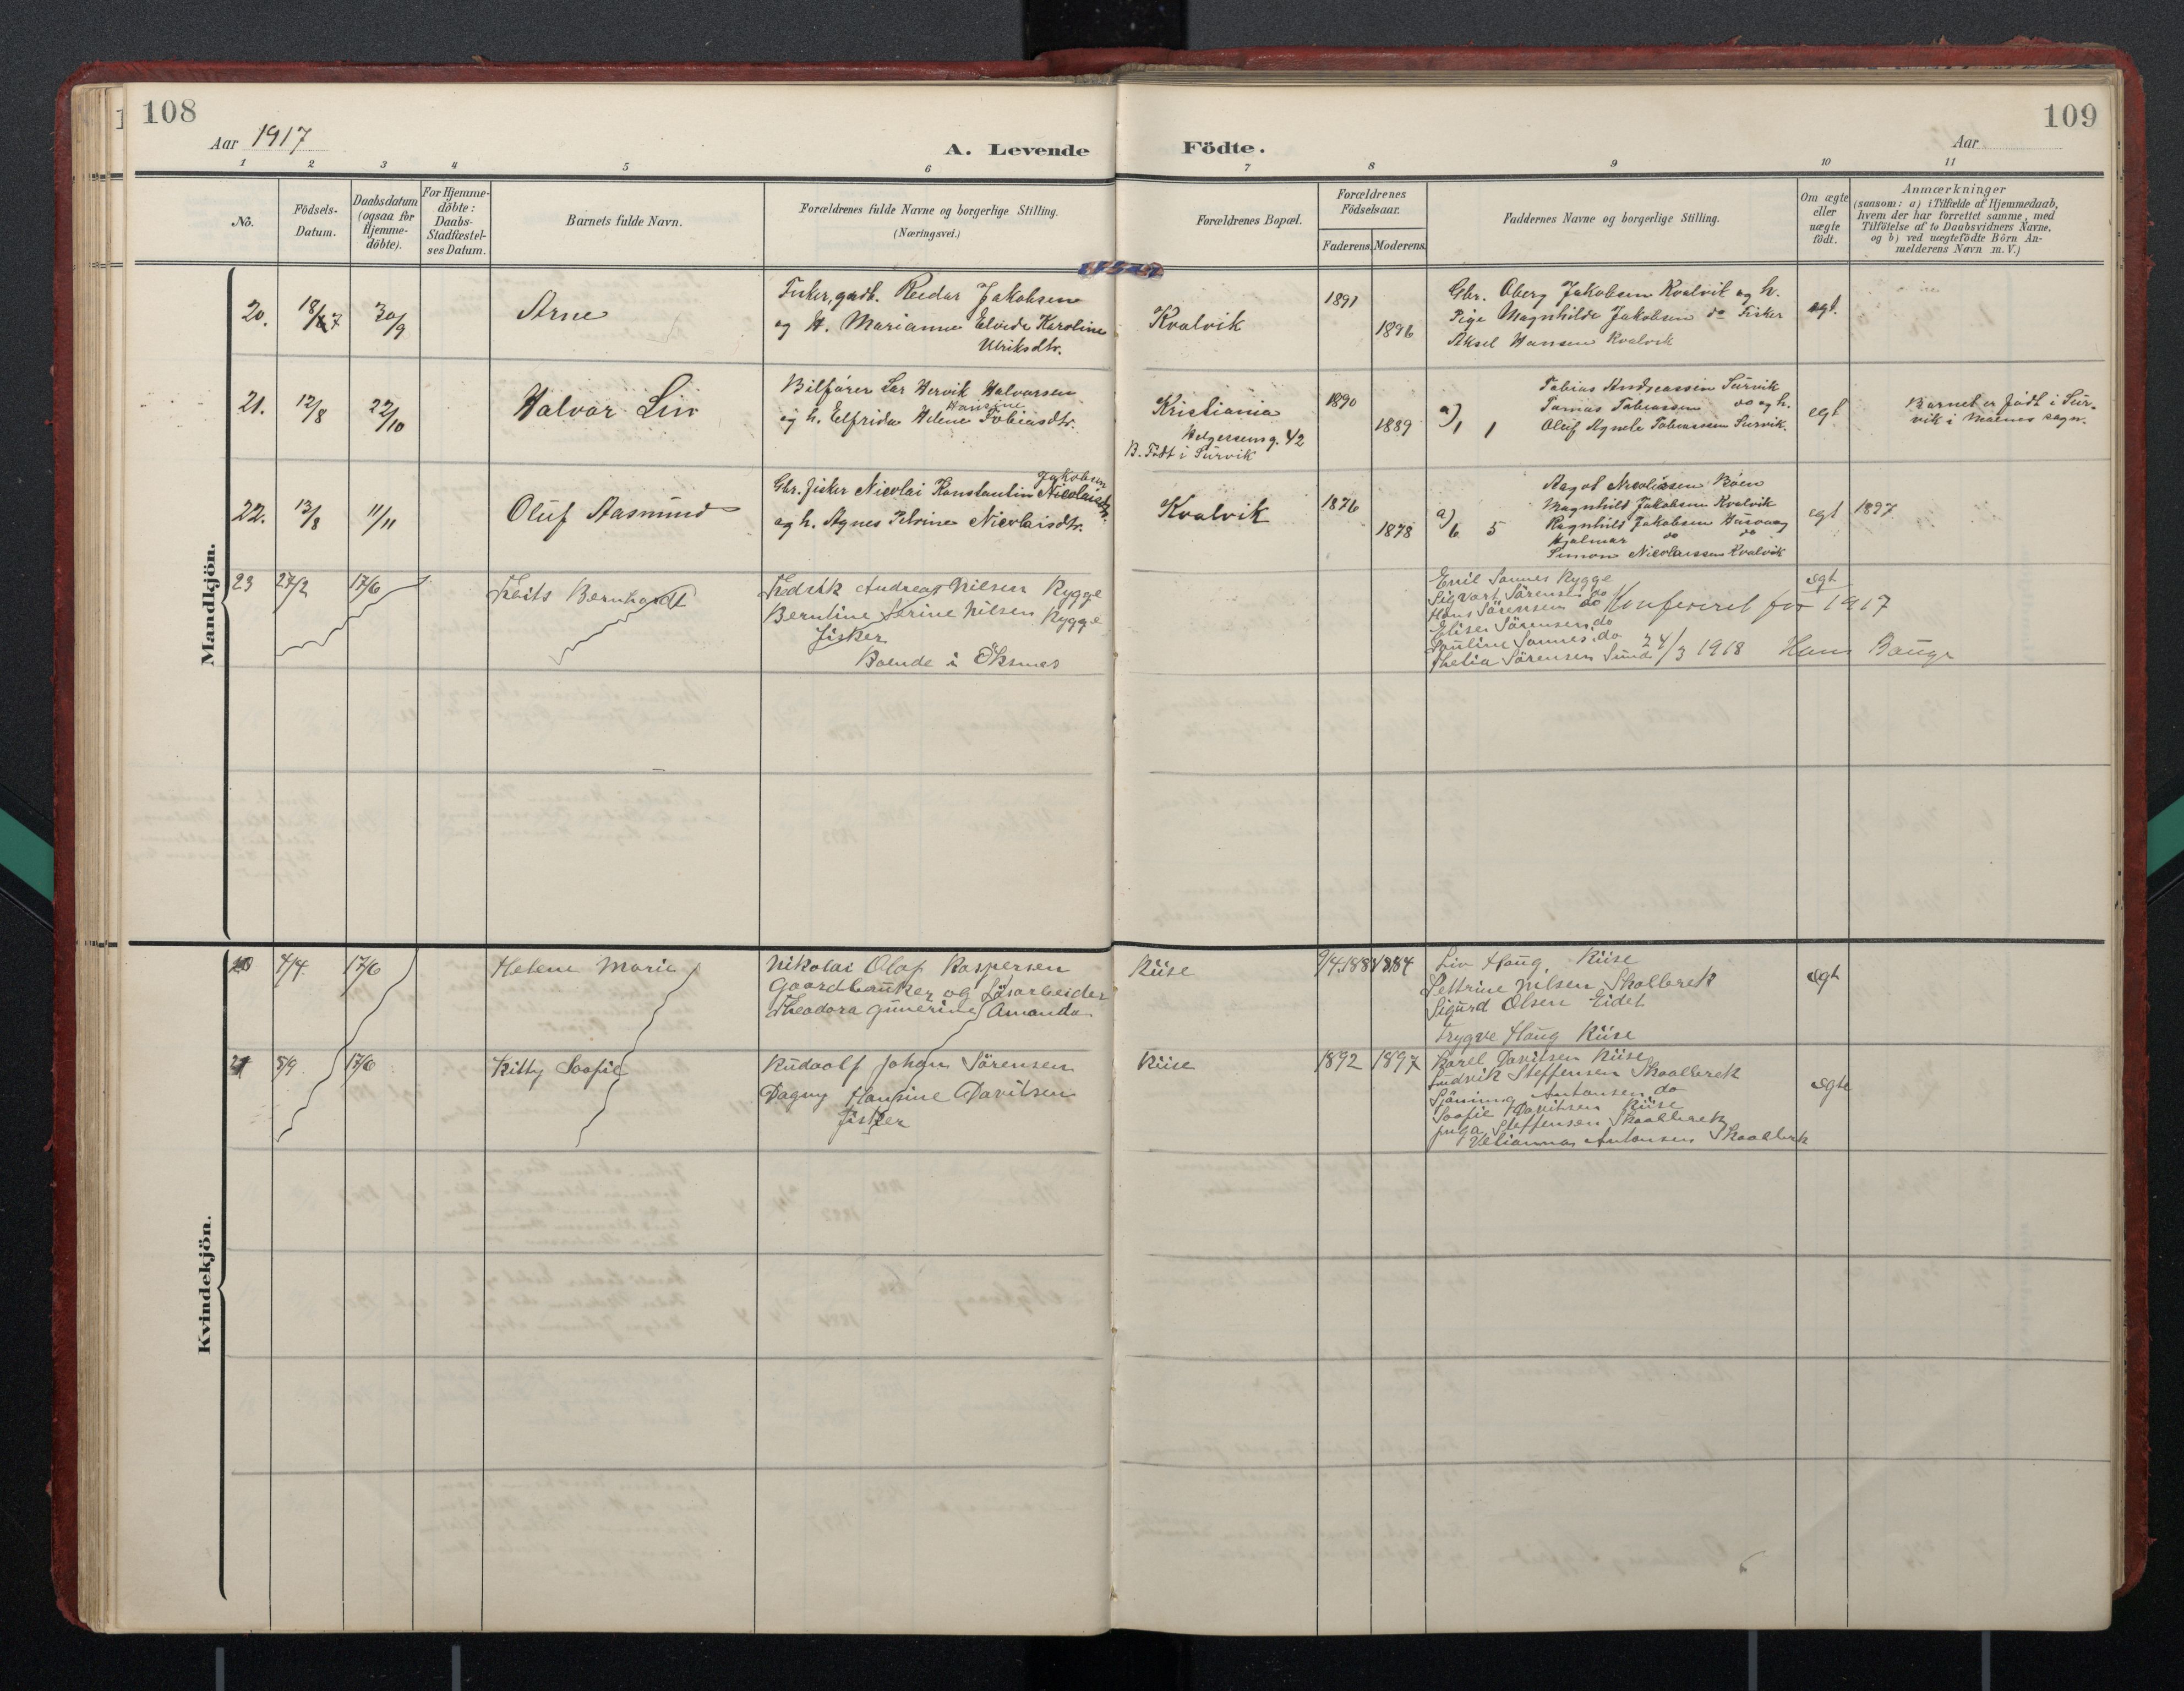 108
Aar 1917
A. Levende
Födte.
109
Aar
1 2 3 4 5 6 7 8 9 10 11
No.
Födsels-
Datum.
Daabsdatum
(ogsaa for
Hjemme-
döbte).
For Hjemme-
döbte:
Daabs-
Stadfæstel-
ses Datum.
Barnets fulde Navn.
Forældrenes fulde Navne og borgerlige Stilling.
(Næringsvei.)
Forældrenes Bopæl.
Forældrenes
Födselsaar.
Faderens. Moderens.
Faddernes Navne og borgerlige Stilling.
Om ægte
eller
uægte
födt.
Anmærkninger
(saasom: a) i Tilfælde af Hjemmedaab,
hvem der har forrettet samme, med
Tilföielse af to Daabsvidners Navne,
og b) ved uægtefödte Börn An-
melderens Navn m. V.)
Mandkjön.
20. 18/7 30/9 Arne
Fisker, gardb. Reidar Jakobsen
og H. Marianne Elvide Karoline
Ulriksdtr.
Kvalvik
1891
1896
Gbr. Oberg Jakobsen Kvalvik og h.
Pige Magnhilde Jakobsen do Fisker
Aksel Hansen Kvalvik
egt.
21. 12/8 22/10 Halvar Liv
Bilförer Lar Hervik Halvorsen
og h. Elfrida Helene Hansine Tobiasdtr.
Kristiania
Helgesensg. 42
B. Födt i Survik
1890
1889
a) 1 1
Tobias Andreassen Survik
Tomas Tobiassen do og h.
Oluf Agnete Tobiassen Survik.
egt
Barnet er födt i Sur-
vik i Malnes sogn.
22. 13/8 11/11 Oluf Aasmund
Gbr. fisker Nicolai Konstantin Jakobsen
og h. Agnes Petrine Nicolaisdtr.
Kvalvik
1876
1878
a) 6 5
Ragnhild Jakobsen
Magnhild Jakobsen Kvalvik
Hjalmar do do
Simon Nicolaissen Kvalvik
egt
1897
23 27/2 17/6
Bernhardt
Fredrik Andreas Nilsen Rygge
Berntine Serine Nilsen Rygge
Fisker
Boende i Öksnes
Emil Sannes Rygge
Sigvart Sörensen do
Hans Sörensen do
Elise Sörensen do
Pauline Sannes do
Thelia Sörensen Sund
egt
Konfereret for 1917
24/3 1918 Hans Bauge
Kvindekjön.
20 4/4 17/6 Helene Marie
Nikolai Olaf Kaspersen
Gaardbruker og Lösarbeider
Theodora Gunerine Amanda
Riise
1884
Liv Haug, Riise
Pettrine Nilsen Skolbrek
Sigurd Olsen Eidet
Trygve Haug Riise
egt
21 5/9 17/6 Kitty Soofie
Rudoolf Johan Sörensen
Dagny Hansine Davitsen
Fisker
Riise
1892 1897
Karel Davitsen Riise
Ludvik Steffensen Skaalbrek
Antonsen do
Soofie Davitsen Riise
Inga Steffensen Skaalbrek
Antonsen Skaalbrek
egte